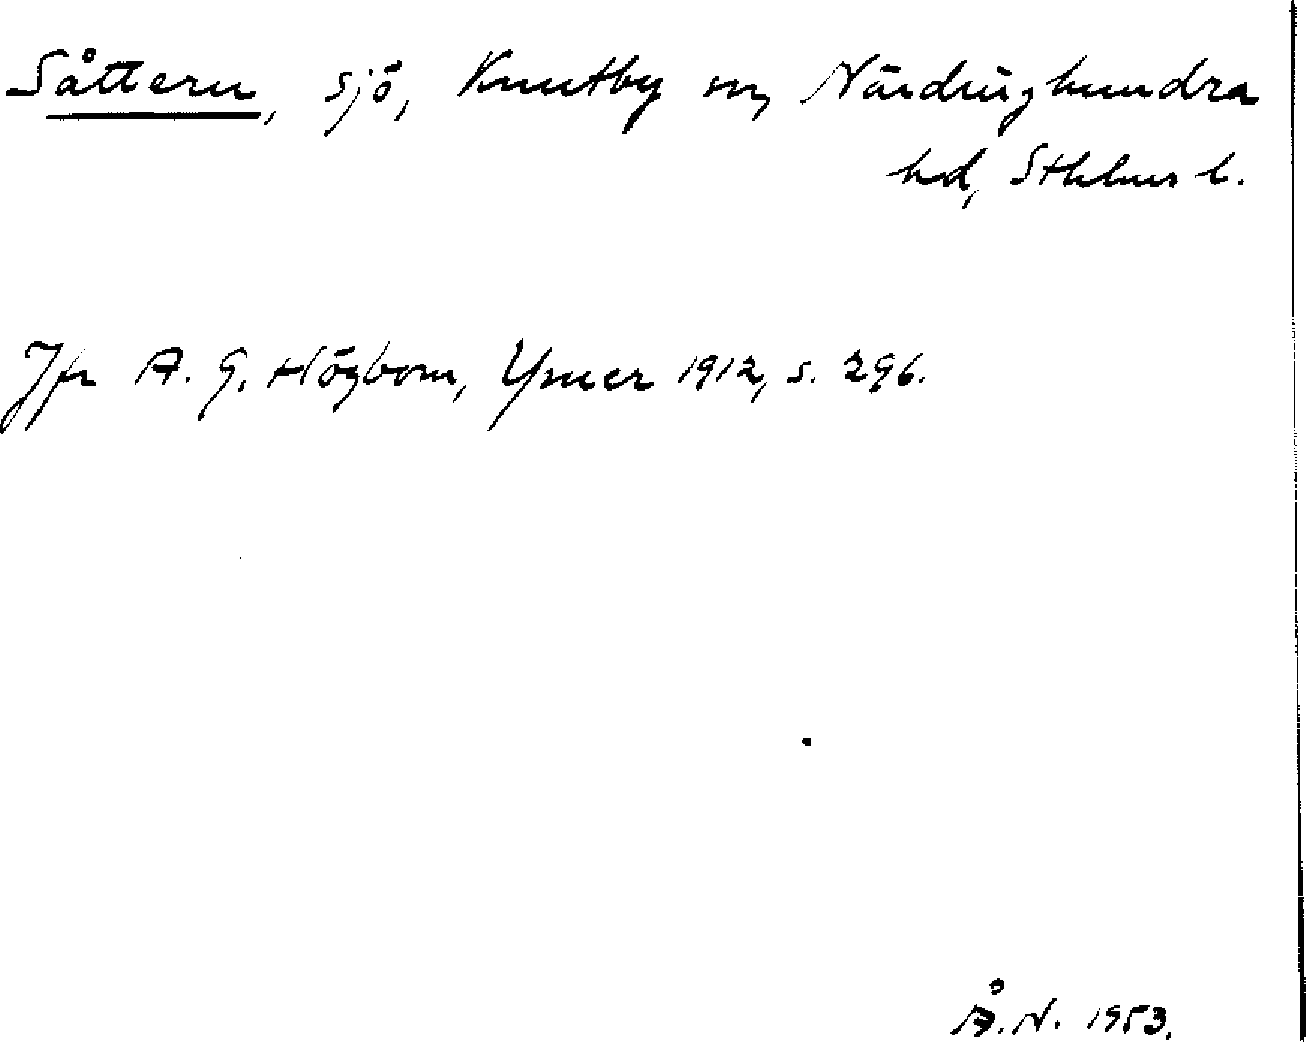 Såttern, sjö, Knutby sn, Närdinghundra
hd, Sthlms l.
Jfr A. G. Högbom, Ymer 1912, s. 296.
Å. N. 1953.